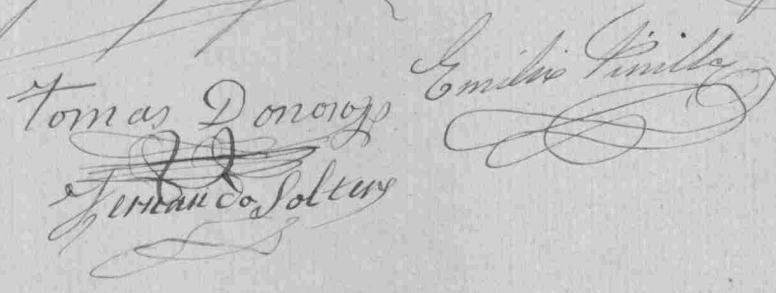 Tomas Donoso
Emilio Pinilla
Fernando Solters